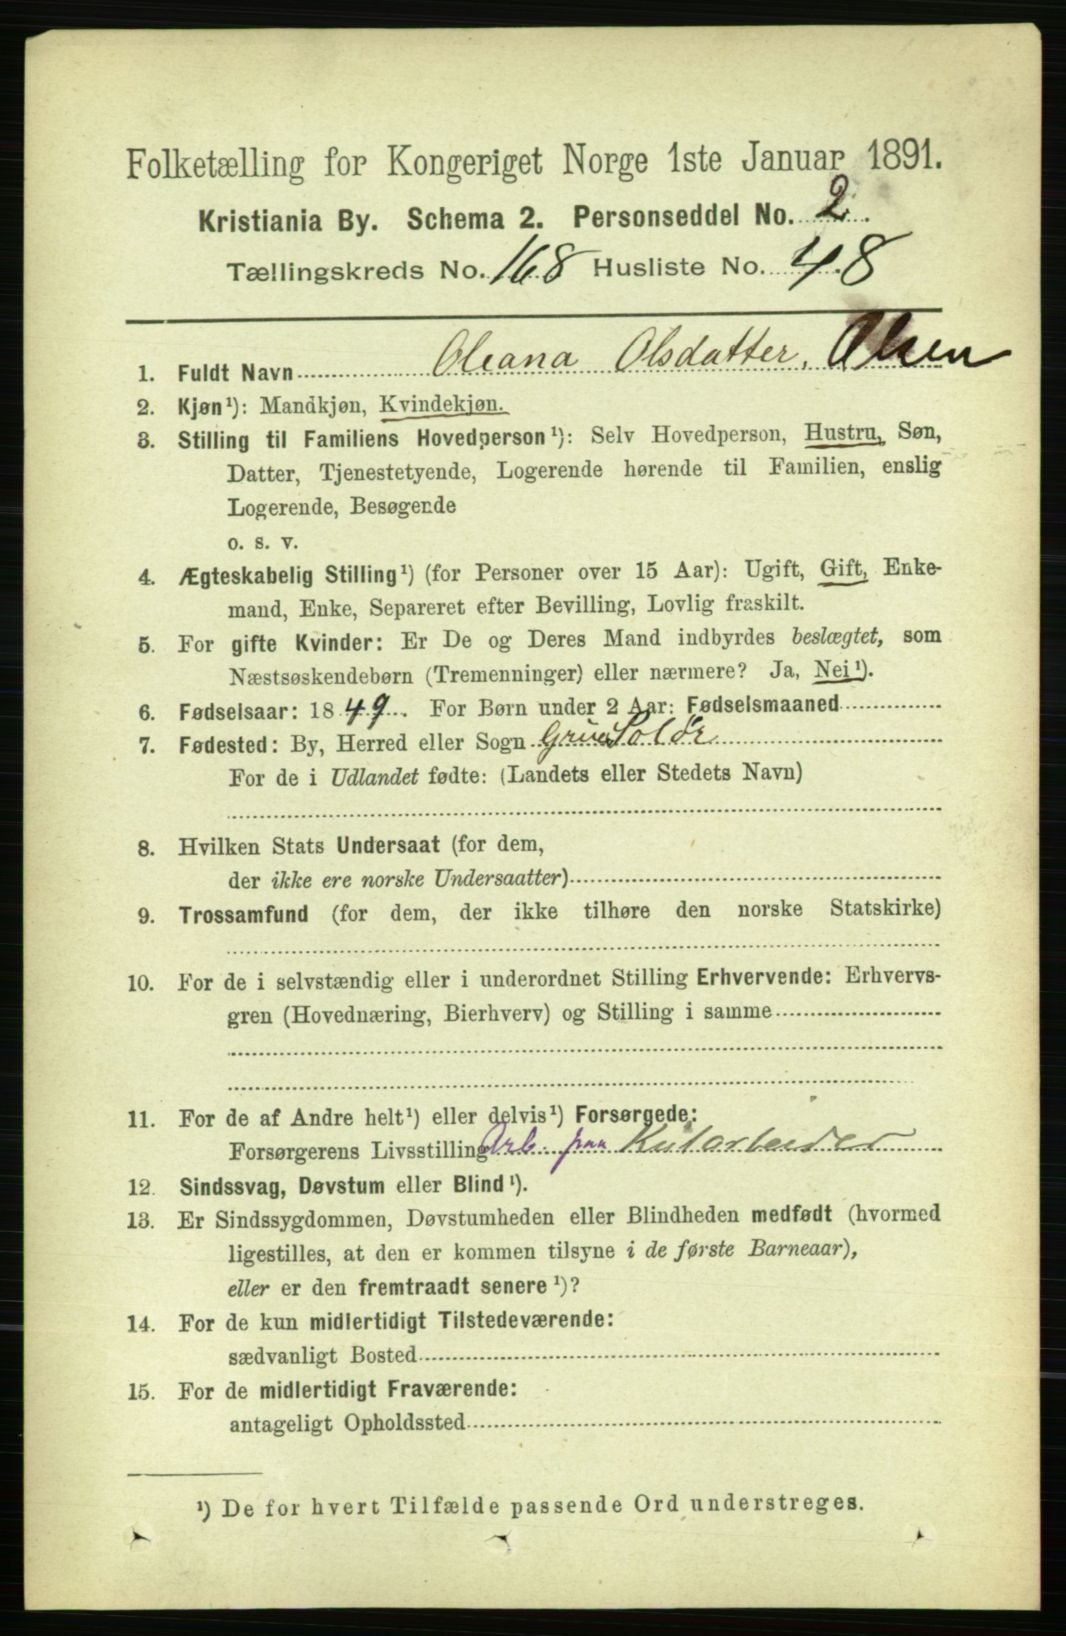 Folketælling for Kongeriget Norge 1ste Januar 1891.
Kristiania By. Schema 2. Personseddel No. 2.
Tællingskreds No. 168 Husliste No. 48
1. Fuldt Navn Oleana Olsdatter, Olsen
2. Kjøn¹): Mandkjøn, Kvindekjøn.
3. Stilling til Familiens Hovedperson¹): Selv Hovedperson, Hustru, Søn,
Datter, Tjenestetyende, Logerende hørende til Familien, enslig
Logerende, Besøgende
o. s. v.
4. Ægteskabelig Stilling¹) (for Personer over 15 Aar): Ugift, Gift, Enke-
mand, Enke, Separeret efter Bevilling, Lovlig fraskilt.
5. For gifte Kvinder: Er De og Deres Mand indbyrdes beslægtet, som
Næstsøskendebørn (Tremenninger) eller nærmere? Ja, Nei¹).
6. Fødselsaar: 1849. For Børn under 2 Aar: Fødselsmaaned
7. Fødested: By, Herred eller Sogn Grue Solør
For de i Udlandet fødte: (Landets eller Stedets Navn)
8. Hvilken Stats Undersaat (for dem,
der ikke ere norske Undersaatter)
9. Trossamfund (for dem, der ikke tilhøre den norske Statskirke)
10. For de i selvstændig eller i underordnet Stilling Erhvervende: Erhvervs-
gren (Hovednæring, Bierhverv) og Stilling i samme
11. For de af Andre helt¹) eller delvis¹) Forsørgede:
Forsørgerens Livsstilling Arb. paa
12. Sindssvag, Døvstum eller Blind¹).
13. Er Sindssygdommen, Døvstumheden eller Blindheden medfødt (hvormed
ligestilles, at den er kommen tilsyne i de første Barneaar),
eller er den fremtraadt senere¹)?
14. For de kun midlertidigt Tilstedeværende:
sædvanligt Bosted
15. For de midlertidigt Fraværende:
antageligt Opholdssted
¹) De for hvert Tilfælde passende Ord understreges.